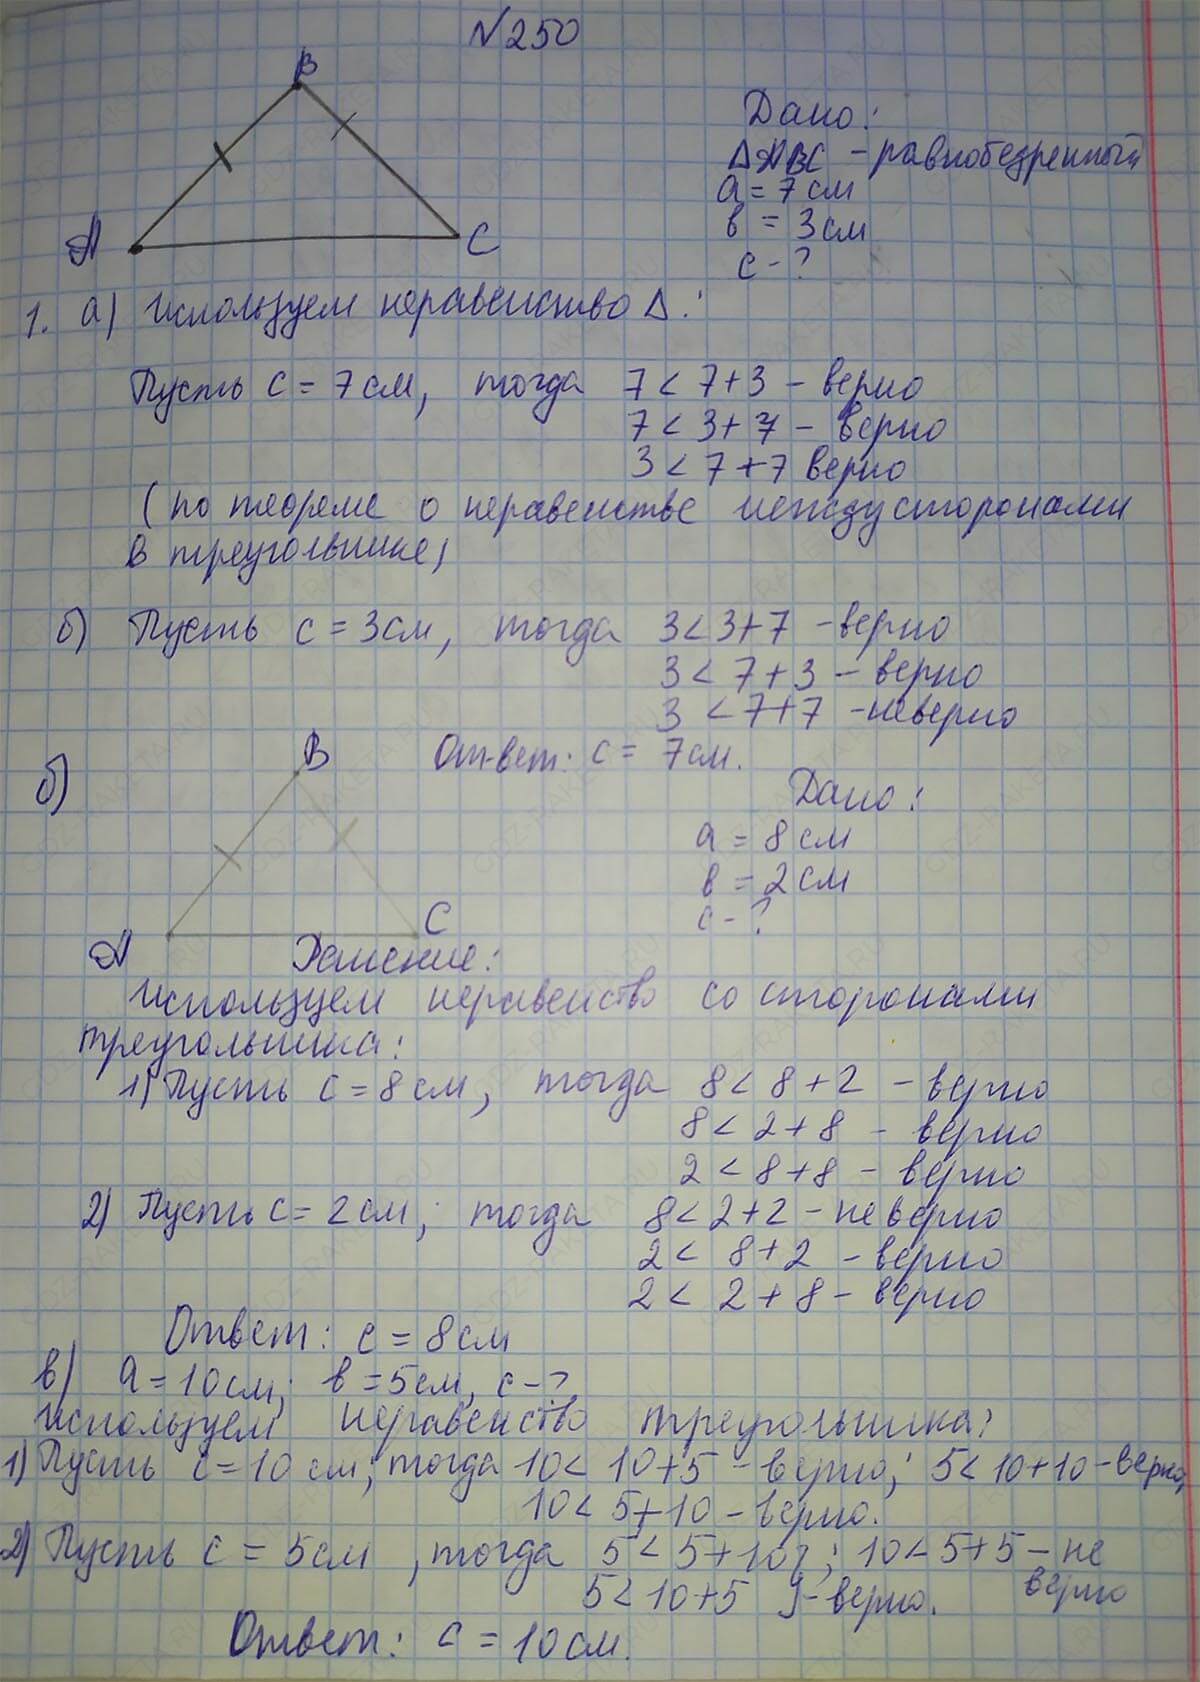 №250
B
A
C
Дано:
ΔABC - равнобедренный
a = 7 см
в = 3 см
c - ?
1. а) Используем неравенство Δ:
Пусть c = 7 см, тогда 7 < 7+3 - верно
7 < 3+7 - верно
3 < 7+7 верно
(по теореме о неравенстве между сторонами
в треугольнике)
б) Пусть c = 3 см, тогда 3 < 3+7 - верно
3 < 7+3 - верно
3 < 7+7 - неверно
Ответ: c = 7 см.
б)
B
A
C
Дано:
a = 8 см
в = 2 см
c - ?
Решение:
Используем неравенство со сторонами
треугольника:
1) Пусть c = 8 см, тогда 8 < 8+2 - верно
8 < 2+8 - верно
2 < 8+8 - верно
2) Пусть c = 2 см, тогда 8 < 2+2 - не верно
2 < 8+2 - верно
2 < 2+8 - верно
Ответ: c = 8 см
в) a = 10 см; в = 5 см, c - ?
Используем неравенство треугольника:
1) Пусть c = 10 см; тогда 10 < 10+5 - верно; 5 < 10+10 - верно,
10 < 5+10 - верно.
2) Пусть c = 5 см, тогда 5 < 5+10 }; 10 < 5+5 - не
5 < 10+5 } - верно. верно
Ответ: c = 10 см.